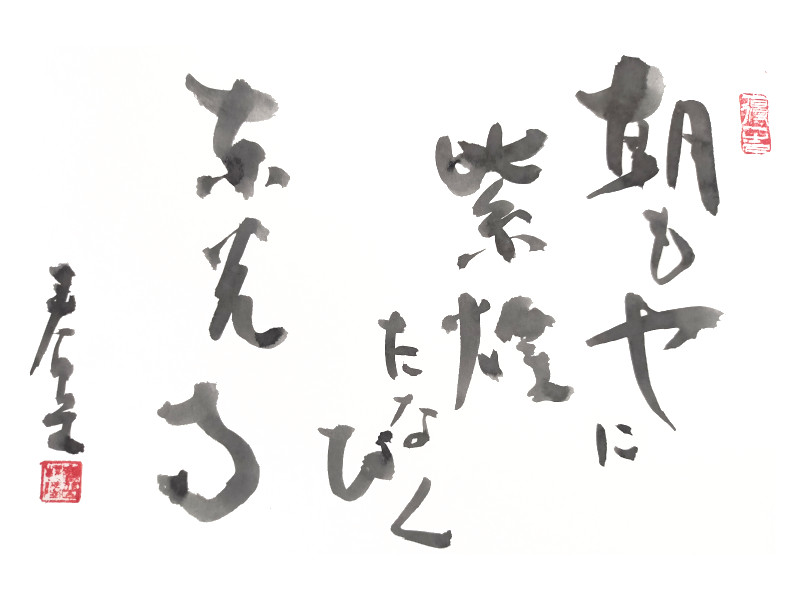 朝もやに
紫煙たなびく
東光る